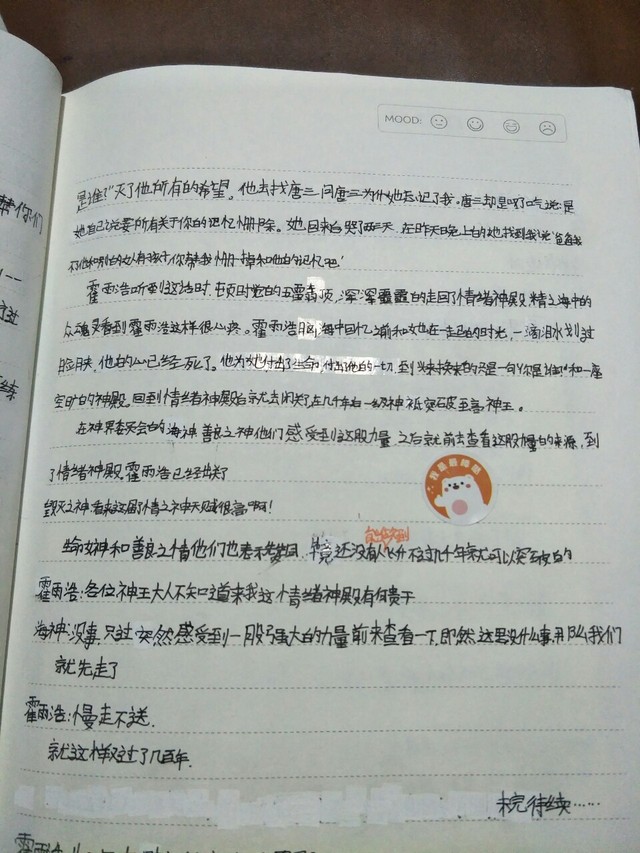 MOOD:
是谁?"灭了他所有的希望。他去找唐三问唐三为什么她忘记了我。唐三却是叹了口气说是
她自己说要所有关于你的记忆删除。她回来白哭了两天,在昨天晚上的她找到我说
和别的女人有孩子你帮我删掉和他的记忆吧!
霍雨浩听到这话时,顿时觉的五雷轰顶,浑浑噩噩的走回了情绪神殿,精之海中的
众魂灵看到霍雨浩这样很心疼。霍雨浩脑海中回忆之前和她在一起的时光,一滴泪水划过
他的心已经死了。他为她付出了生命,付出了他的一切,到头来换来的只是一句"你是谁!"和一座
空旷的神殿。回到情绪神殿后就去闭关,在几十年后一级神祇突破至喜神王。
在神界委员会的海神善良之神他们感受到这股力量之后就前去查看这股力量的来源,到
了情绪神殿,霍雨浩已经出关了
毁灭之神:看来这届情绪之神天赋很高啊!
生命女神和善良之神他们也表示赞同,竟还没有人能不过几十年就可以突破的
霍雨浩:各位神王大人不知道来我这情绪神殿有何贵干
海神:没事,只过突然感受到一股强大的力量前来查看一下,即然这里没什么事,那么我们
就先走了
霍雨浩:慢走不送.
就这样又过了几百年.
未完待续……